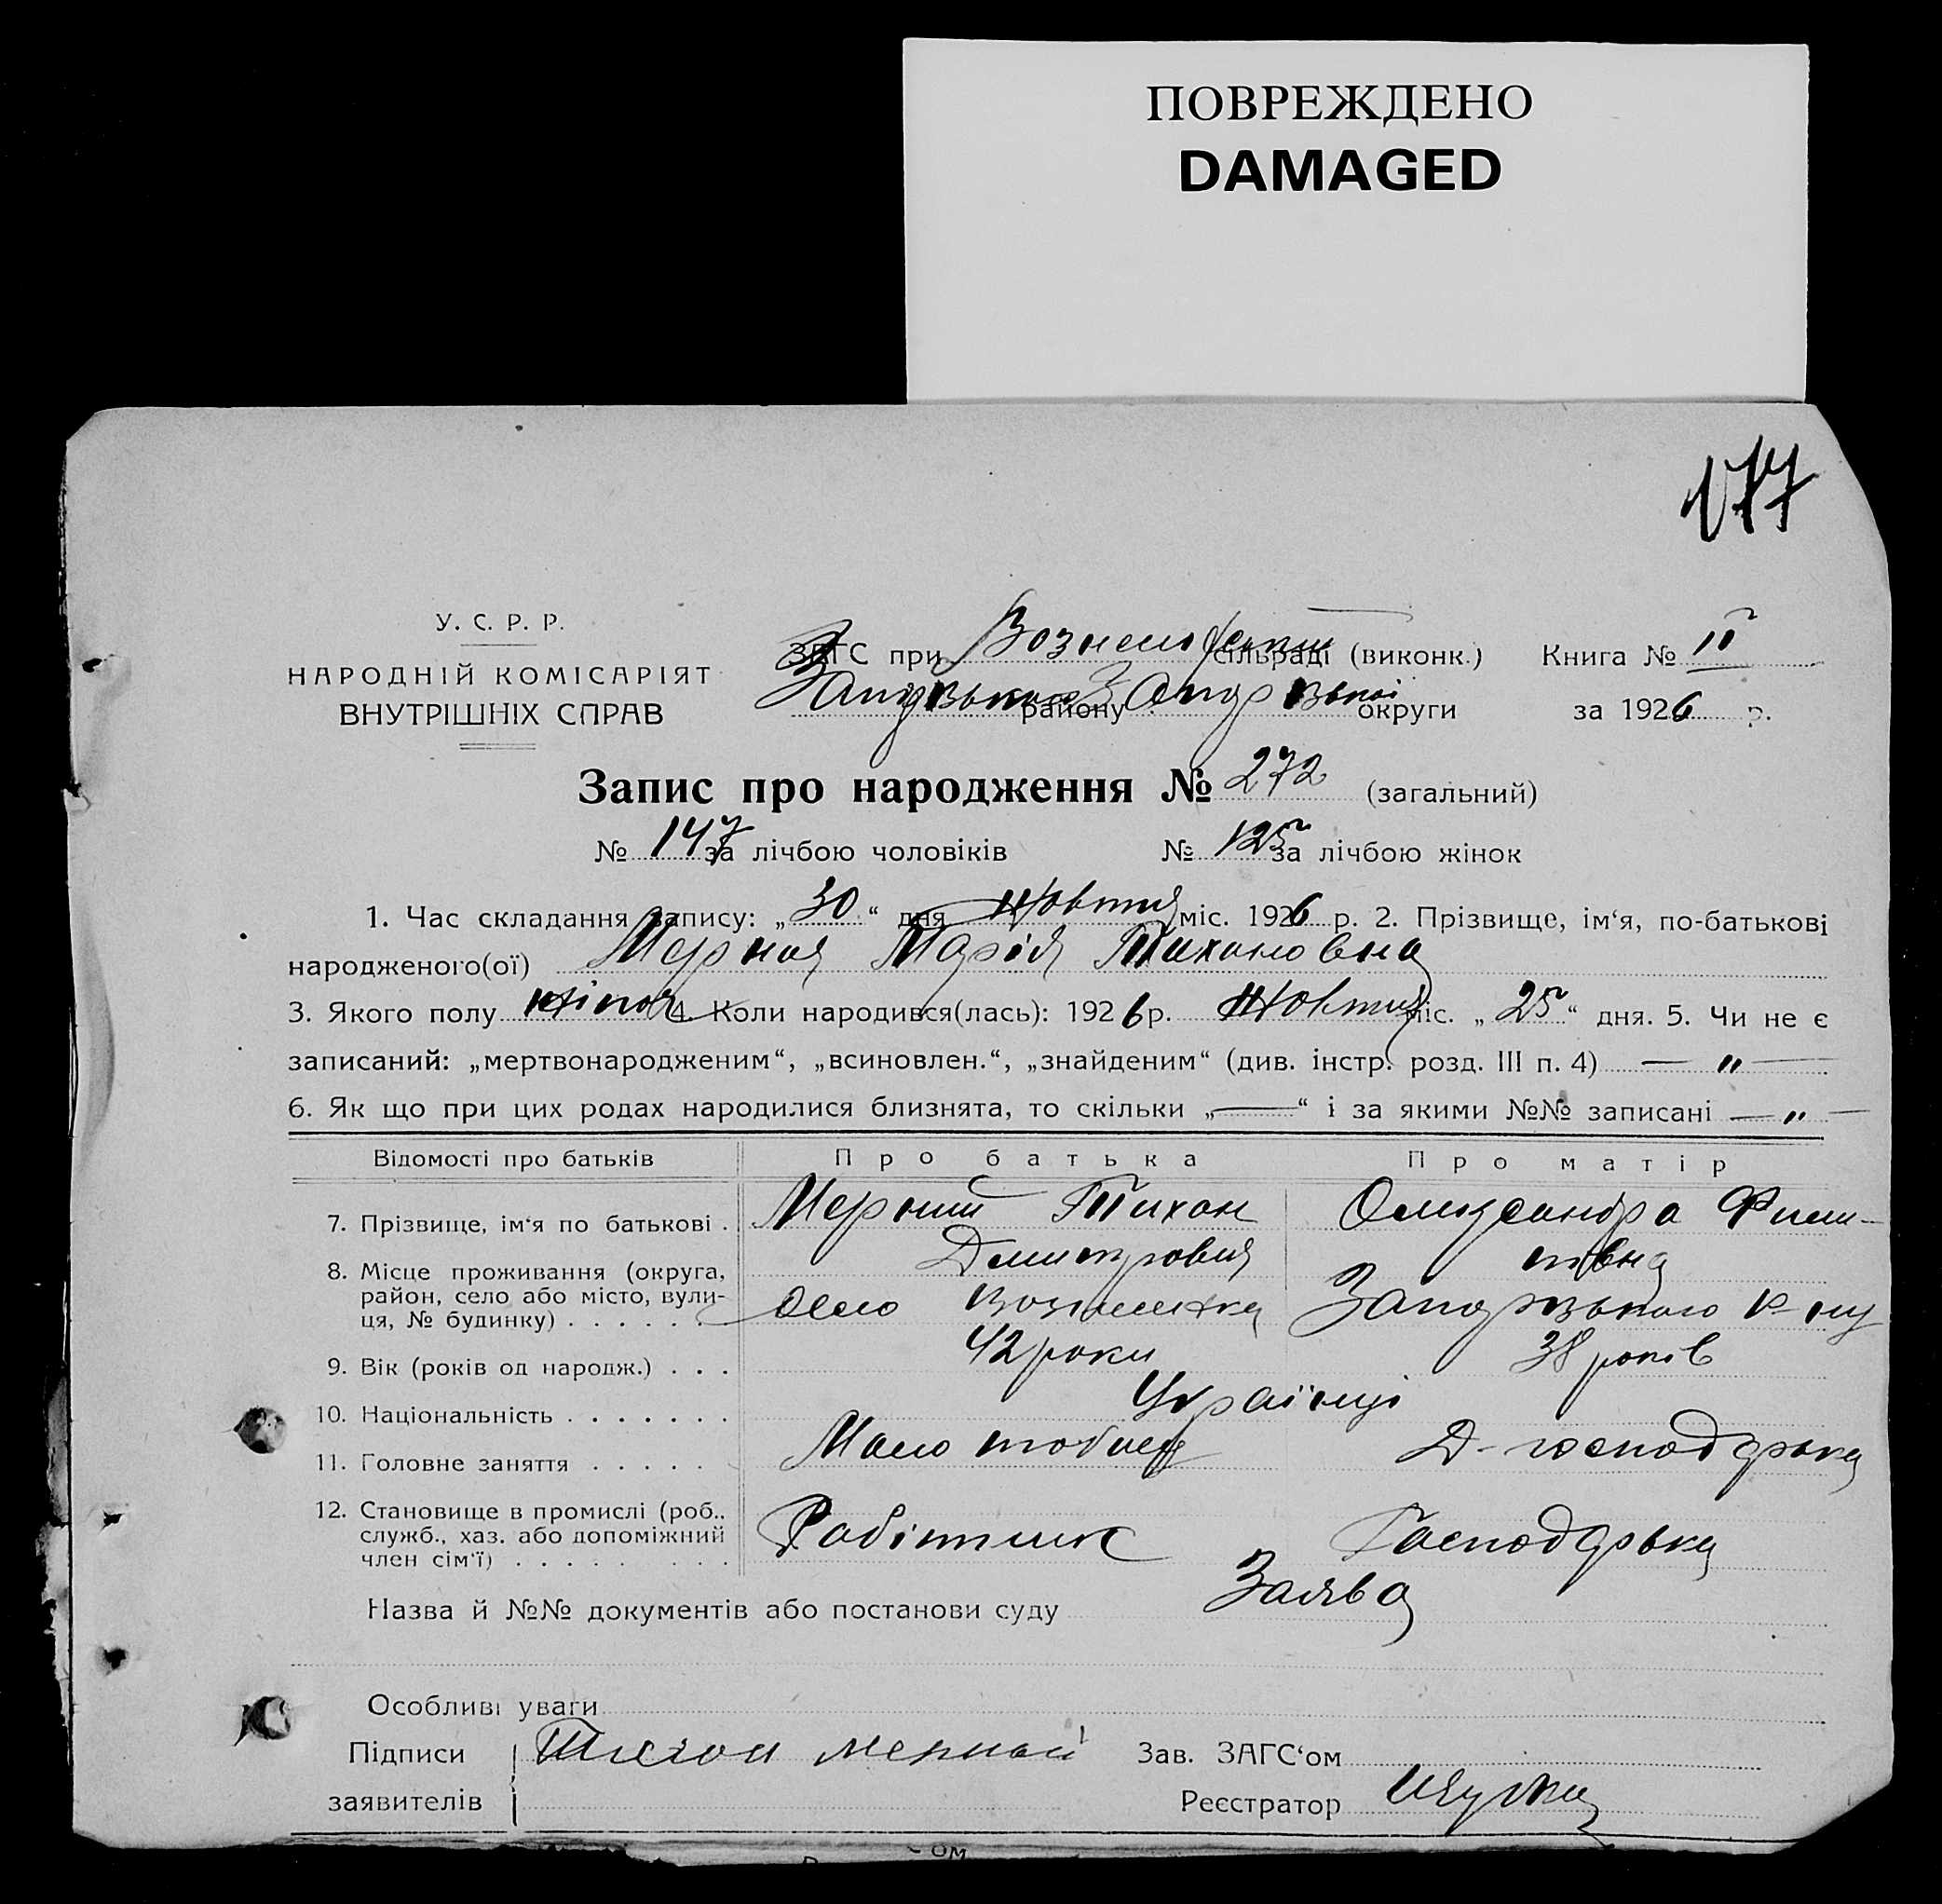 ПОВРЕЖДЕНО
DAMAGED
177
У. С. Р. Р.
НАРОДНІЙ КОМІСАРІЯТ
ВНУТРІШНІХ СПРАВ
ЗАГС при Вознесенській сільраді (виконк.) Книга № II
району округи за 1926 р.
Запис про народження № 272 (загальний)
№ 147 за лічбою чоловіків № 125 за лічбою жінок
1. Час складання запису: „30“ дня Жовтня міс. 1926 р. 2. Прізвище, ім‘я, по-батькові
народженого(ої) Мерная Марія Тихоновна
3. Якого полу жіноч. 4. Коли народився(лась): 1926 р. Жовтня міс. „25“ дня. 5. Чи не є
записаний: „мертвонародженим“, „всиновлен.“, „знайденим“ (див. інстр. розд. III п. 4) — „ —
6. Як що при цих родах народилися близнята, то скільки „—“ і за якими №№ записані — „ —
Відомості про батьків Про батька Про матір
7. Прізвище, ім‘я по батькові . Мерний Тихон Олександра Фили-
Дмитрович півна
8. Місце проживання (округа,
район, село або місто, вули-
ця, № будинку) . . . . . . Село Вознесенка Запорізького р-ну
9. Вік (років од народж.) . . . 42 роки 38 років
10. Національність . . . . . . . Українці
11. Головне заняття . . . . . Д-господарка
12. Становище в промислі (роб..
служб., хаз. або допоміжний
член сім‘ї) . . . . . . . . Робітник Господарка
Назва й №№ документів або постанови суду Заява
Особливі уваги
Підписи Тихон Мерной Зав. ЗАГС‘ом
заявителів Реєстратор
ом